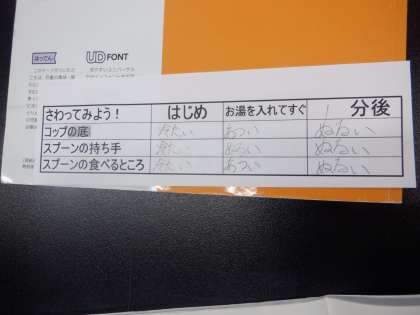 はってん
UD FONT
さわってみよう! はじめ お湯を入れてすぐ 1 分後
コップの底 冷たい あつい ぬるい
スプーンの持ち手 冷たい ぬるい ぬるい
スプーンの食べるところ 冷たい あつい ぬるい